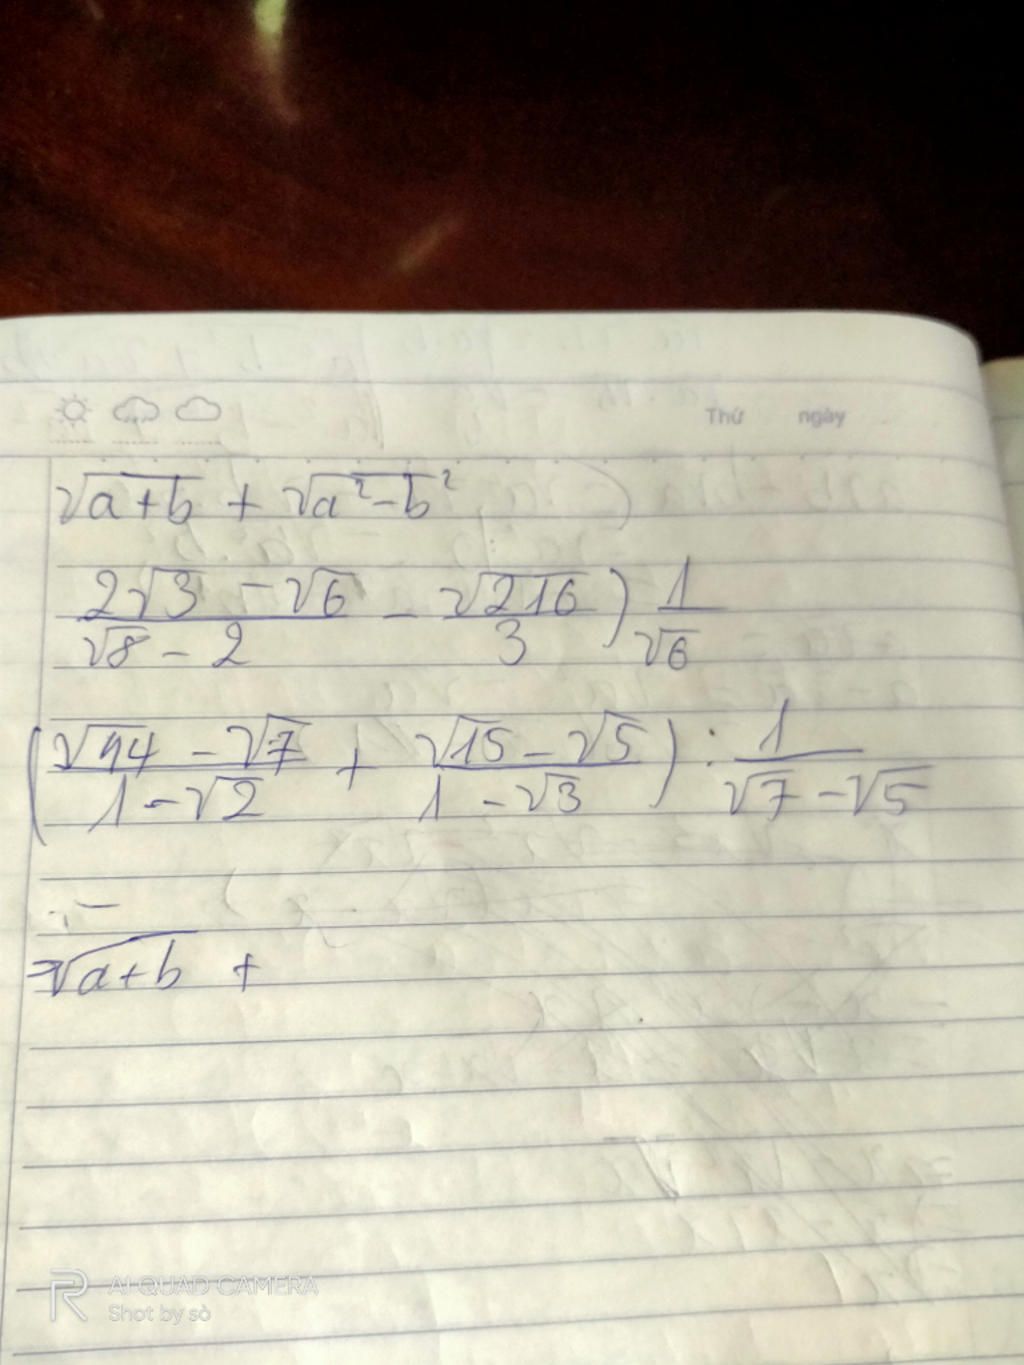 Thứ ngày
√a+b + √a²-b²
2√3 - √6 / √8 - 2 - √216 / 3 ) 1 / √6
( √14 - √7 / 1 - √2 + √15 - √5 / 1 - √3 ) : 1 / √7 - √5
= √a+b +
R AI QUAD CAMERA
Shot by sò